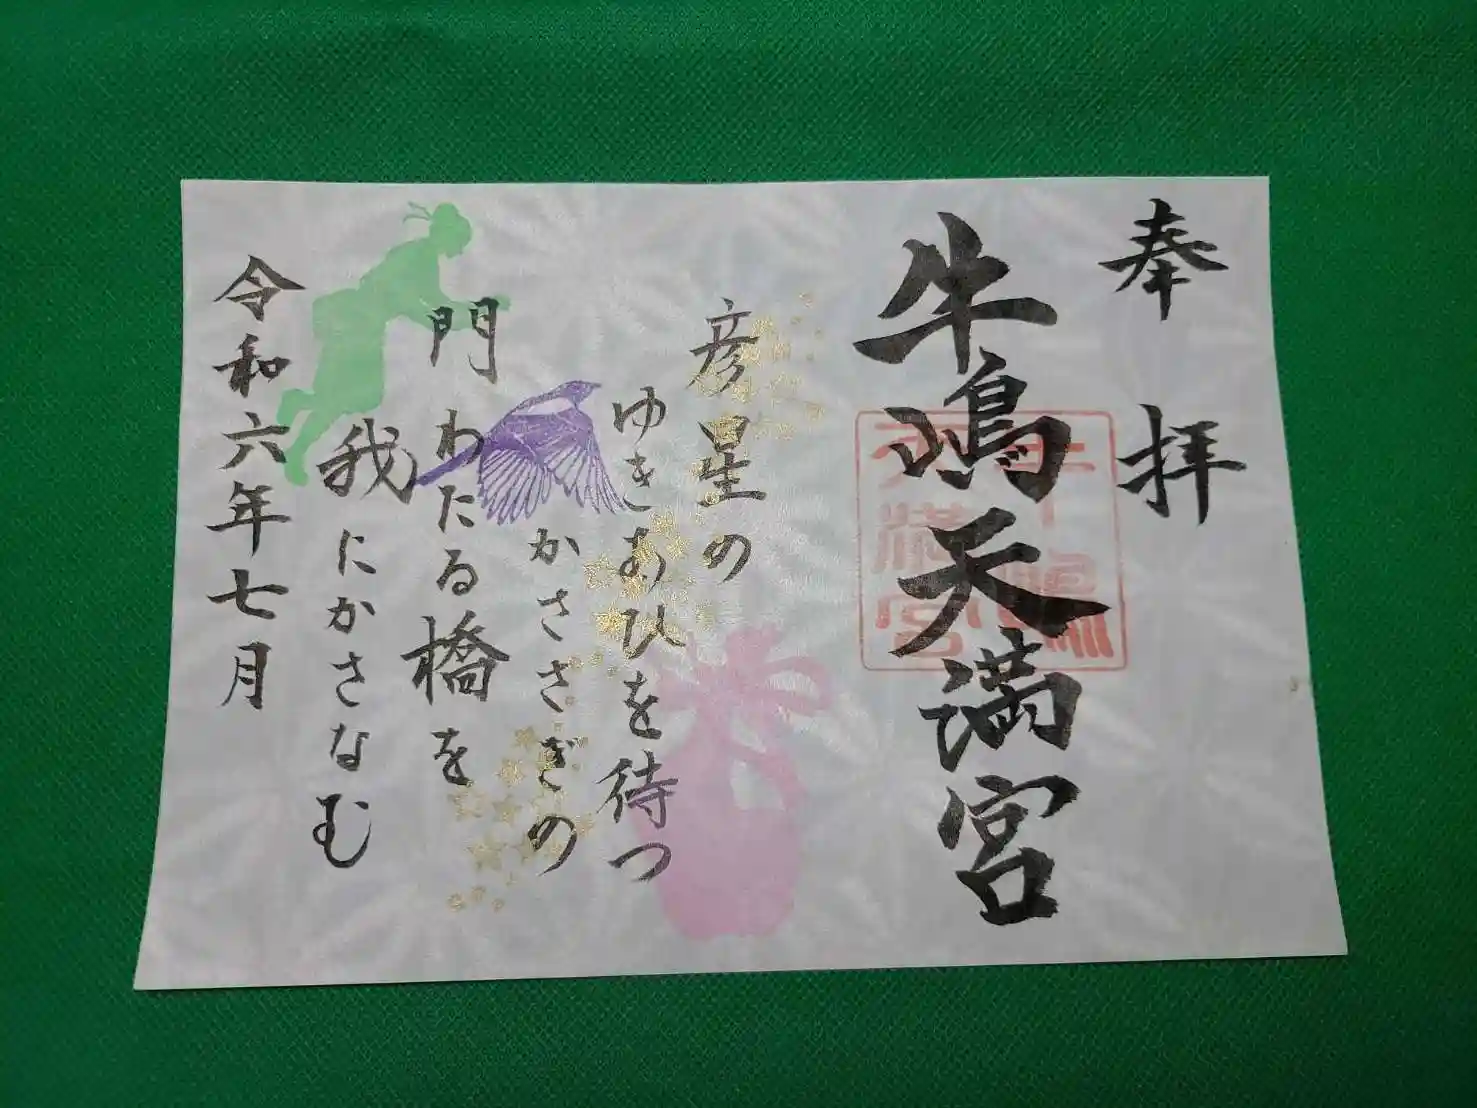 奉拝
牛嶋天満宮
牛嶋
天満宮
彦星の
ゆきあひを待つ
かささぎの
門わたる橋を
我にかさなむ
令和六年七月